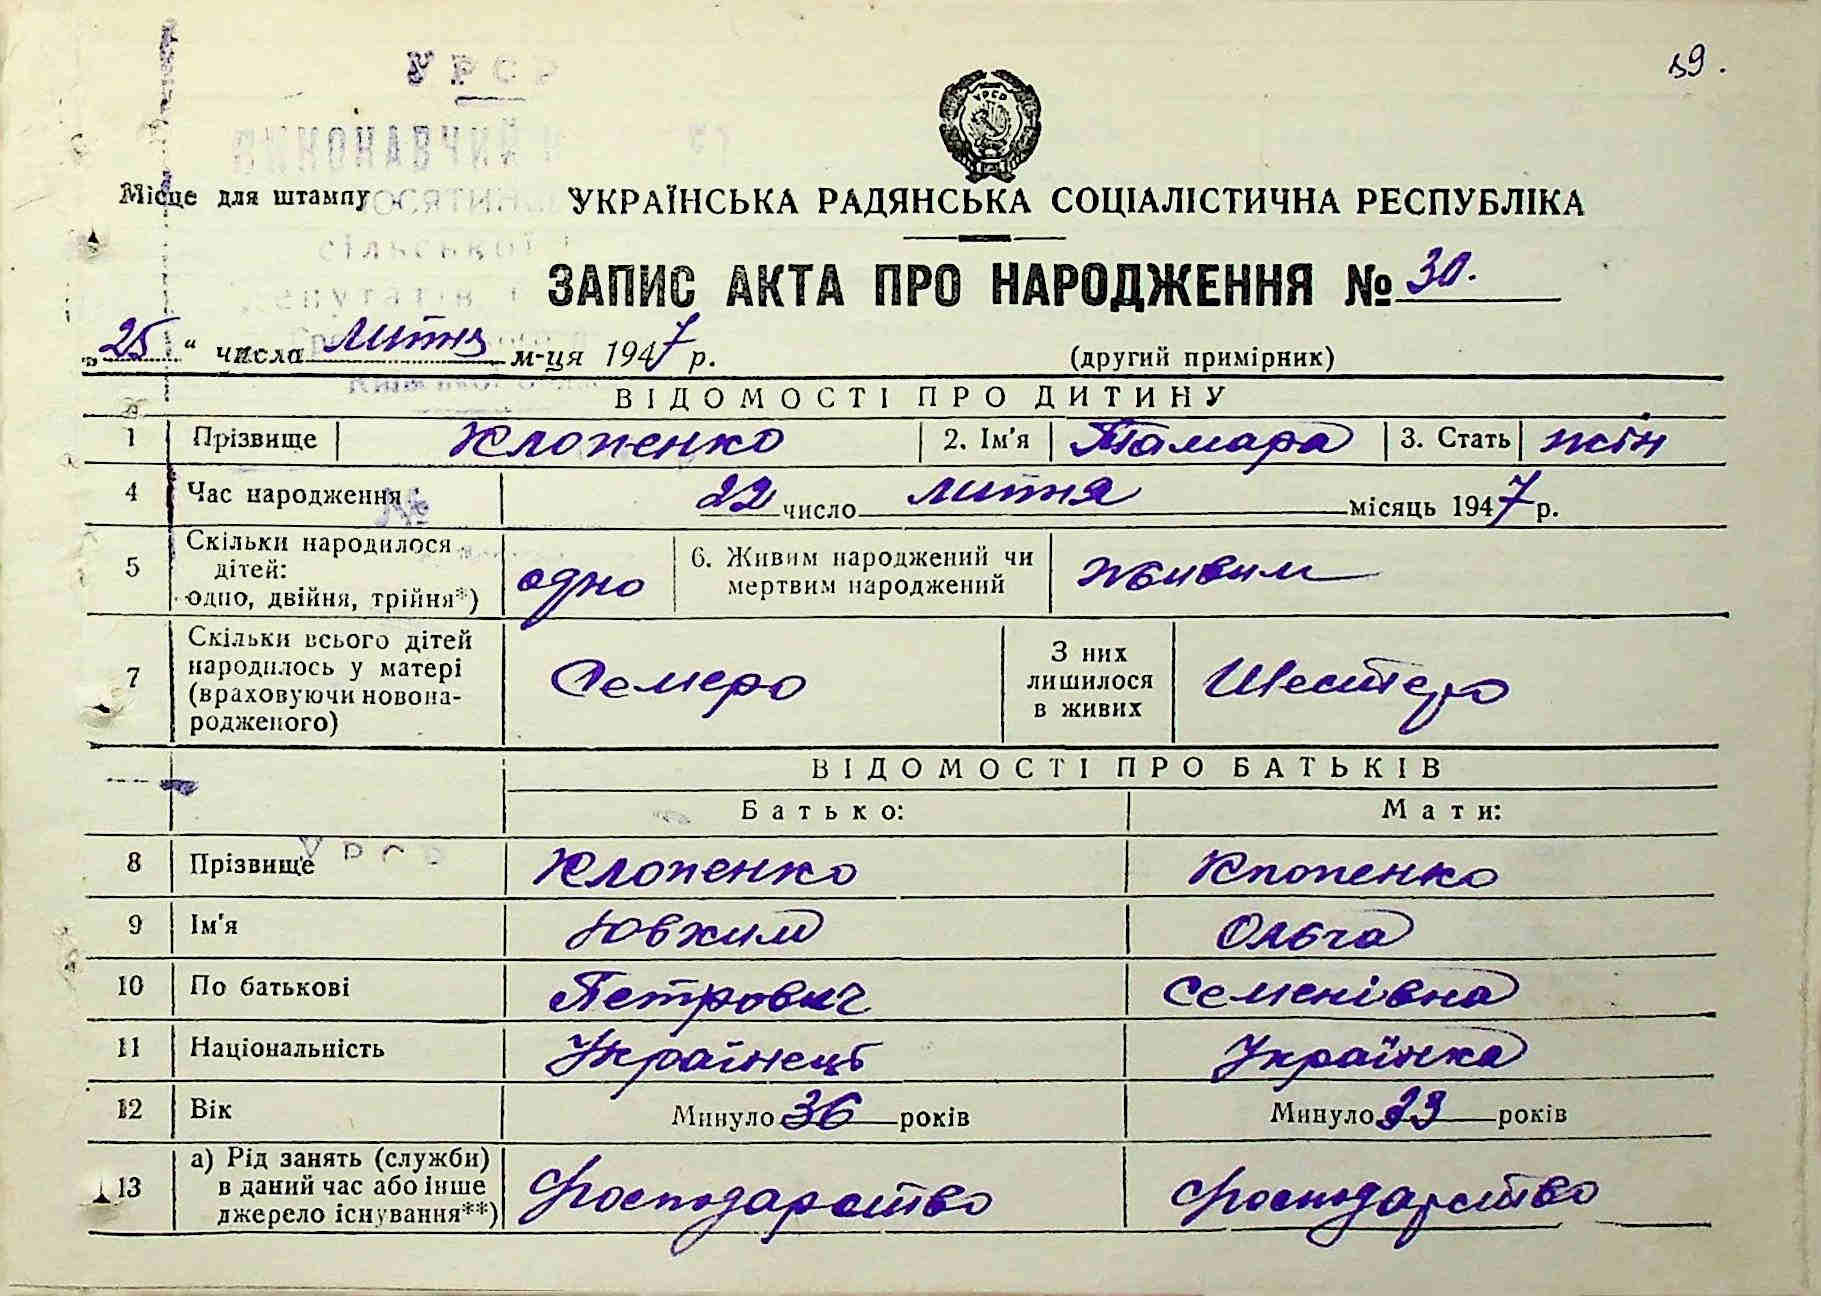 39.
УРСР
ВИКОНАВЧИЙ
Місце для штампу
УРСР
УКРАЇНСЬКА РАДЯНСЬКА СОЦІАЛІСТИЧНА РЕСПУБЛІКА
сільської
депутатів
ЗАПИС АКТА ПРО НАРОДЖЕННЯ № 30.
„25“ числа лютня м-ця 1947 р. (другий примірник)
ВІДОМОСТІ ПРО ДИТИНУ
1 Прізвище Клопенко 2. Ім'я Тамара 3. Стать жін
4 Час народження 22 число лютня місяць 1947 р.
5 Скільки народилося
дітей:
одно, двійня, трійня*) одно 6. Живим народжений чи
мертвим народжений живим
7 Скільки всього дітей
народилось у матері
(враховуючи новона-
родженого) Семеро З них
лишилося
в живих Шестеро
ВІДОМОСТІ ПРО БАТЬКІВ
Батько: Мати:
УРСР
8 Прізвище Клопенко Клопенко
9 Ім'я Ювхим Ольга
10 По батькові Петрович Семенівна
11 Національність Українець Українка
12 Вік Минуло 36 років Минуло 33 років
13 а) Рід занять (служби)
в даний час або інше
джерело існування**) Господарство Господарство